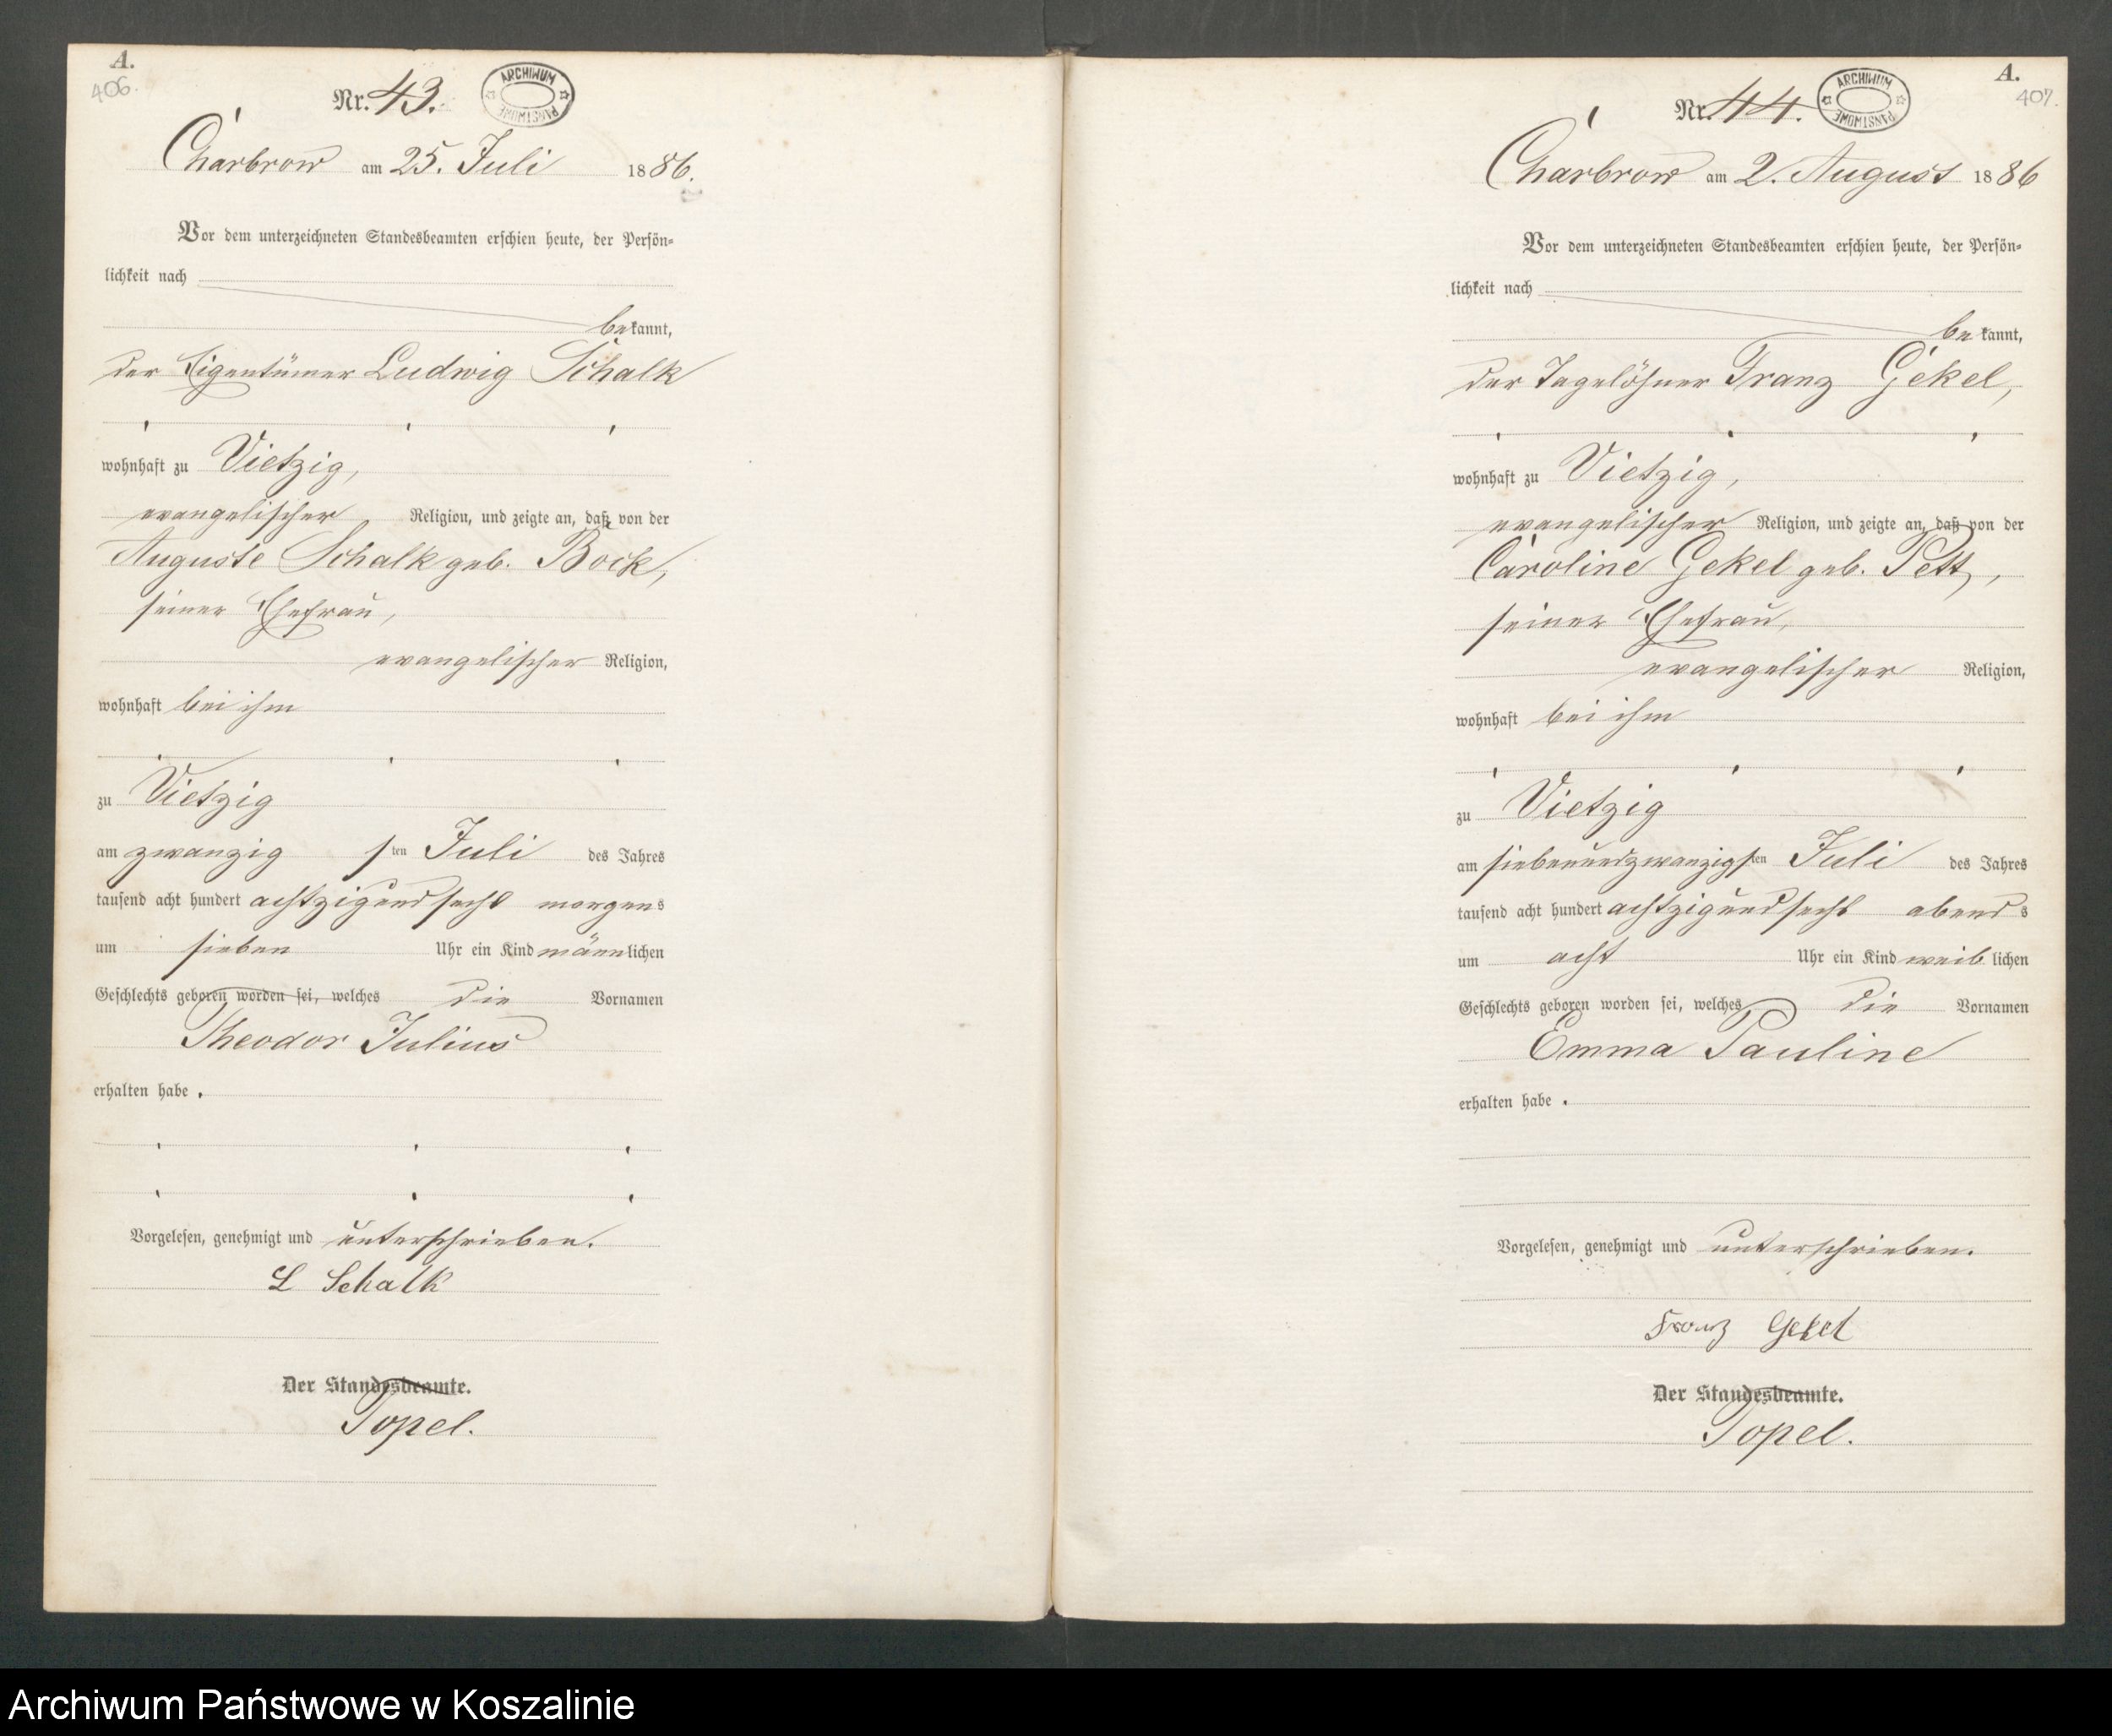 A.
406.
Nr. 43.
ARCHIWUM PAŃSTWOWE
Charbrow am 25. Juli 1886.
Vor dem unterzeichneten Standesbeamten erschien heute, der Persön-
lichkeit nach
bekannt,
der Eigentümer Ludwig Schalk
wohnhaft zu Vietzig,
evangelischer Religion, und zeigte an, daß von der
Auguste Schalk geb. Bock,
seiner Ehefrau,
evangelischer Religion,
wohnhaft bei ihm
zu Vietzig
am zwanzig sten Juli des Jahres
tausend acht hundert achtzigundsechs morgens
um sieben Uhr ein Kind männlichen
Geschlechts geboren worden sei, welches die Vornamen
Theodor Julius
erhalten habe.
Vorgelesen, genehmigt und unterschrieben.
L Schalk
Der Standesbeamte.
Topel.
A.
407.
Nr. 44.
ARCHIWUM PAŃSTWOWE
Charbrow am 2. August 1886
Vor dem unterzeichneten Standesbeamten erschien heute, der Persön-
lichkeit nach
bekannt,
der Tagelöhner Franz Gekel,
wohnhaft zu Vietzig,
evangelischer Religion, und zeigte an, daß von der
Caroline Gekel geb. Pett,
seiner Ehefrau,
evangelischer Religion,
wohnhaft bei ihm
zu Vietzig
am siebenundzwanzigsten Juli des Jahres
tausend acht hundert achtzigundsechs abends
um acht Uhr ein Kind weiblichen
Geschlechts geboren worden sei, welches die Vornamen
Emma Pauline
erhalten habe.
Vorgelesen, genehmigt und unterschrieben.
Franz Gekel
Der Standesbeamte.
Topel.
Archiwum Państwowe w Koszalinie